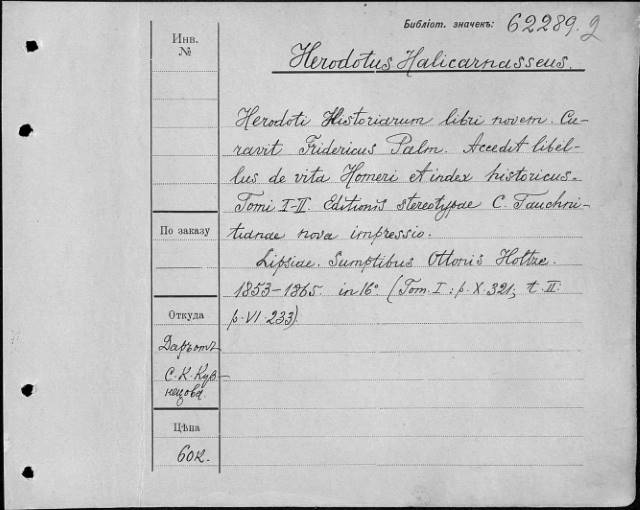 Библіот. значекъ: 62289.2
Инв.
№
Herodotus Halicarnasseus.
Herodoti Historiarum libri novem. Cu-
ravit Fridericus Palm. Accedit libel-
lus de vita Homeri et index historicus.
Tomi I-II. Editionis stereotypae C. Tauchni-
tianae nova impressio.
По заказу
Lipsiae. Sumptibus Ottonis Holtze.
1853-1865. in 16° (Tom. I: p. X. 321; t. II.
Откуда
p. VI. 233).
Даръ отъ
С. К. Куз-
нецова.
Цѣна
60 к.